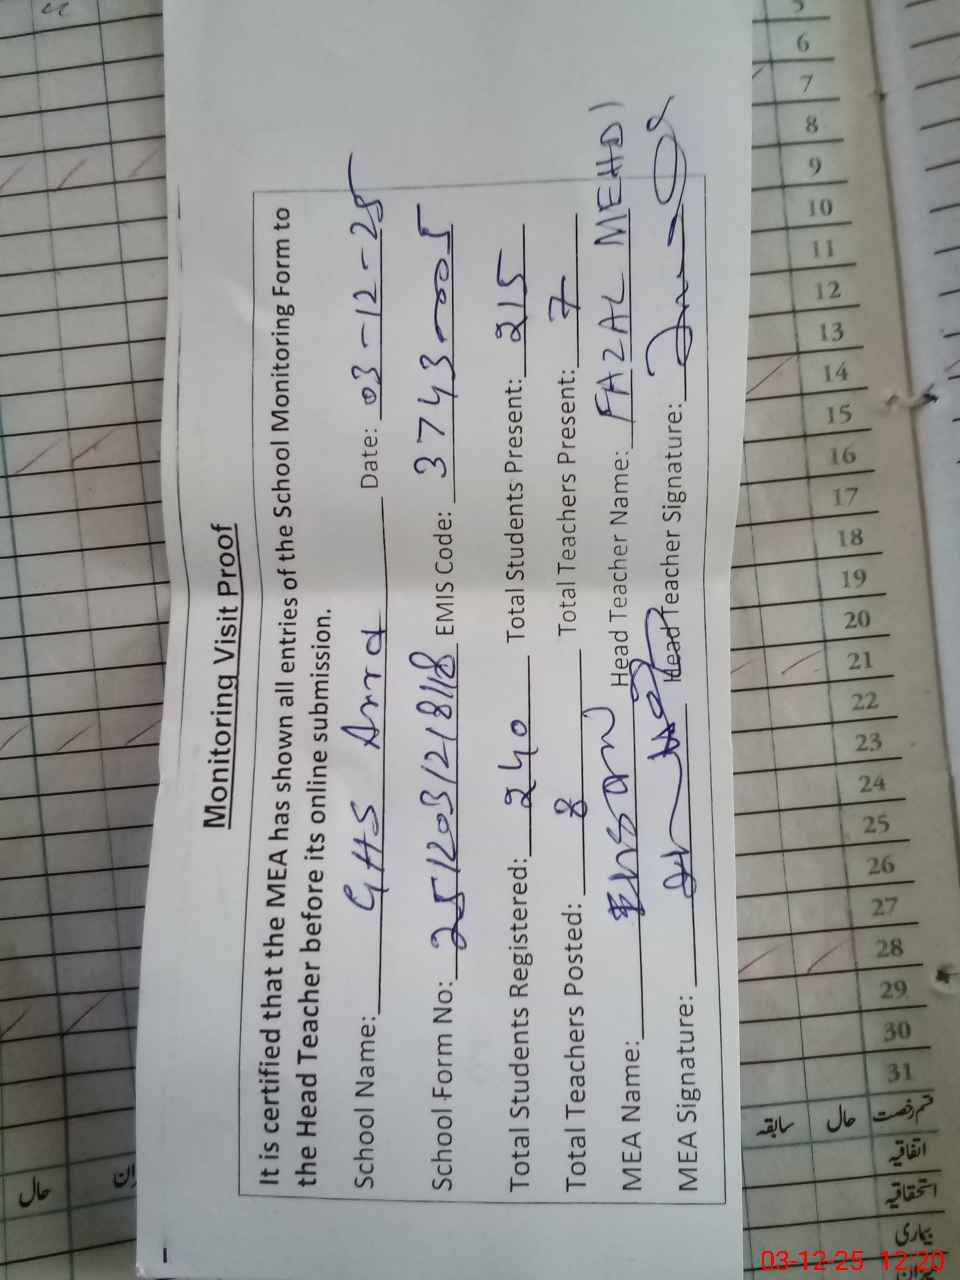 Monitoring Visit Proof
It is certified that the MEA has shown all entries of the School Monitoring Form to
the Head Teacher before its online submission.
School Name: GHS Arra Date: 03-12-25
School Form No: EMIS Code: 3743-0005
Total Students Registered: 240 Total Students Present: 215
Total Teachers Posted: 8 Total Teachers Present: 7
MEA Name: EHSAN Head Teacher Name: FAZAL MEHDI
MEA Signature: Head Teacher Signature:
5
6
7
8
9
10
11
12
13
14
15
16
17
18
19
20
21
22
23
24
25
26
27
28
29
30
31
قسم رخصت
حال
سابقہ
اتفاقیہ
استحقاقیہ
بیماری
حال
03-12-25 12:20